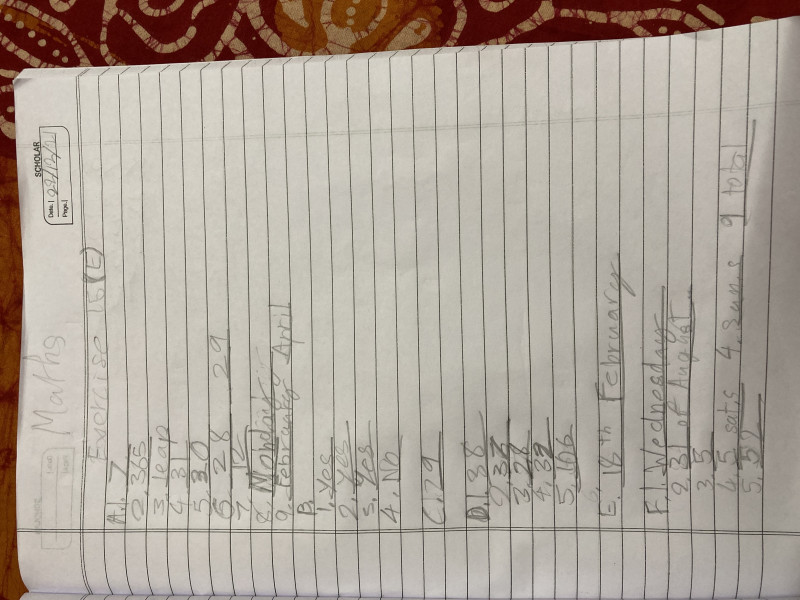 SCHOLAR
Date
Page
Maths
Exercise 16(E)
A. 1. 7
2. 365
3. leap
4. 31
5. 30
6. 28, 29
7. 12
8. Monday
9. February April
B.
1. Yes
2. Yes
3. Yes
4. No
C. 79
D. 1. 38
2. 33
3. 28
4. 32
5. 106
E. 18th February
F. 1. Wednesday
2. 31 of August
3. 5
4. 5 sats 4 suns 9 total
5. 52